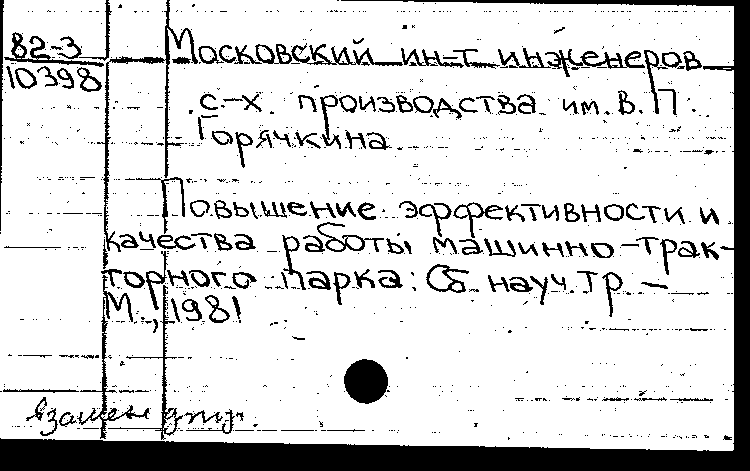 82-3
10398
Московский ин-т инженеров
с-х. производства им. В. П.
Горячкина
Повышение эффективности и
качества работы машинно-трак-
торного парка: Сб. науч. тр. –
М., 1981
взамен